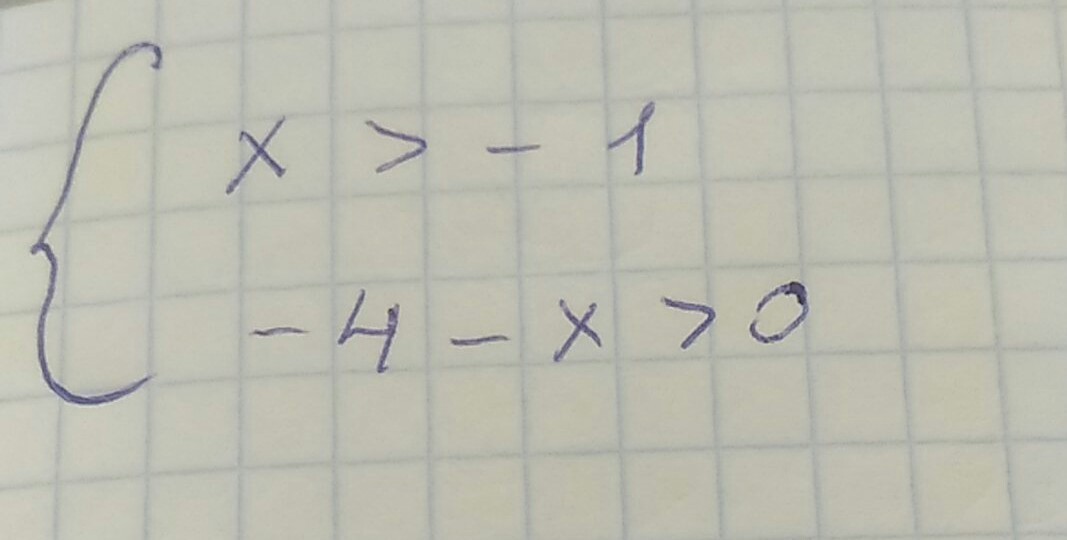 x > - 1
- 4 - x > 0